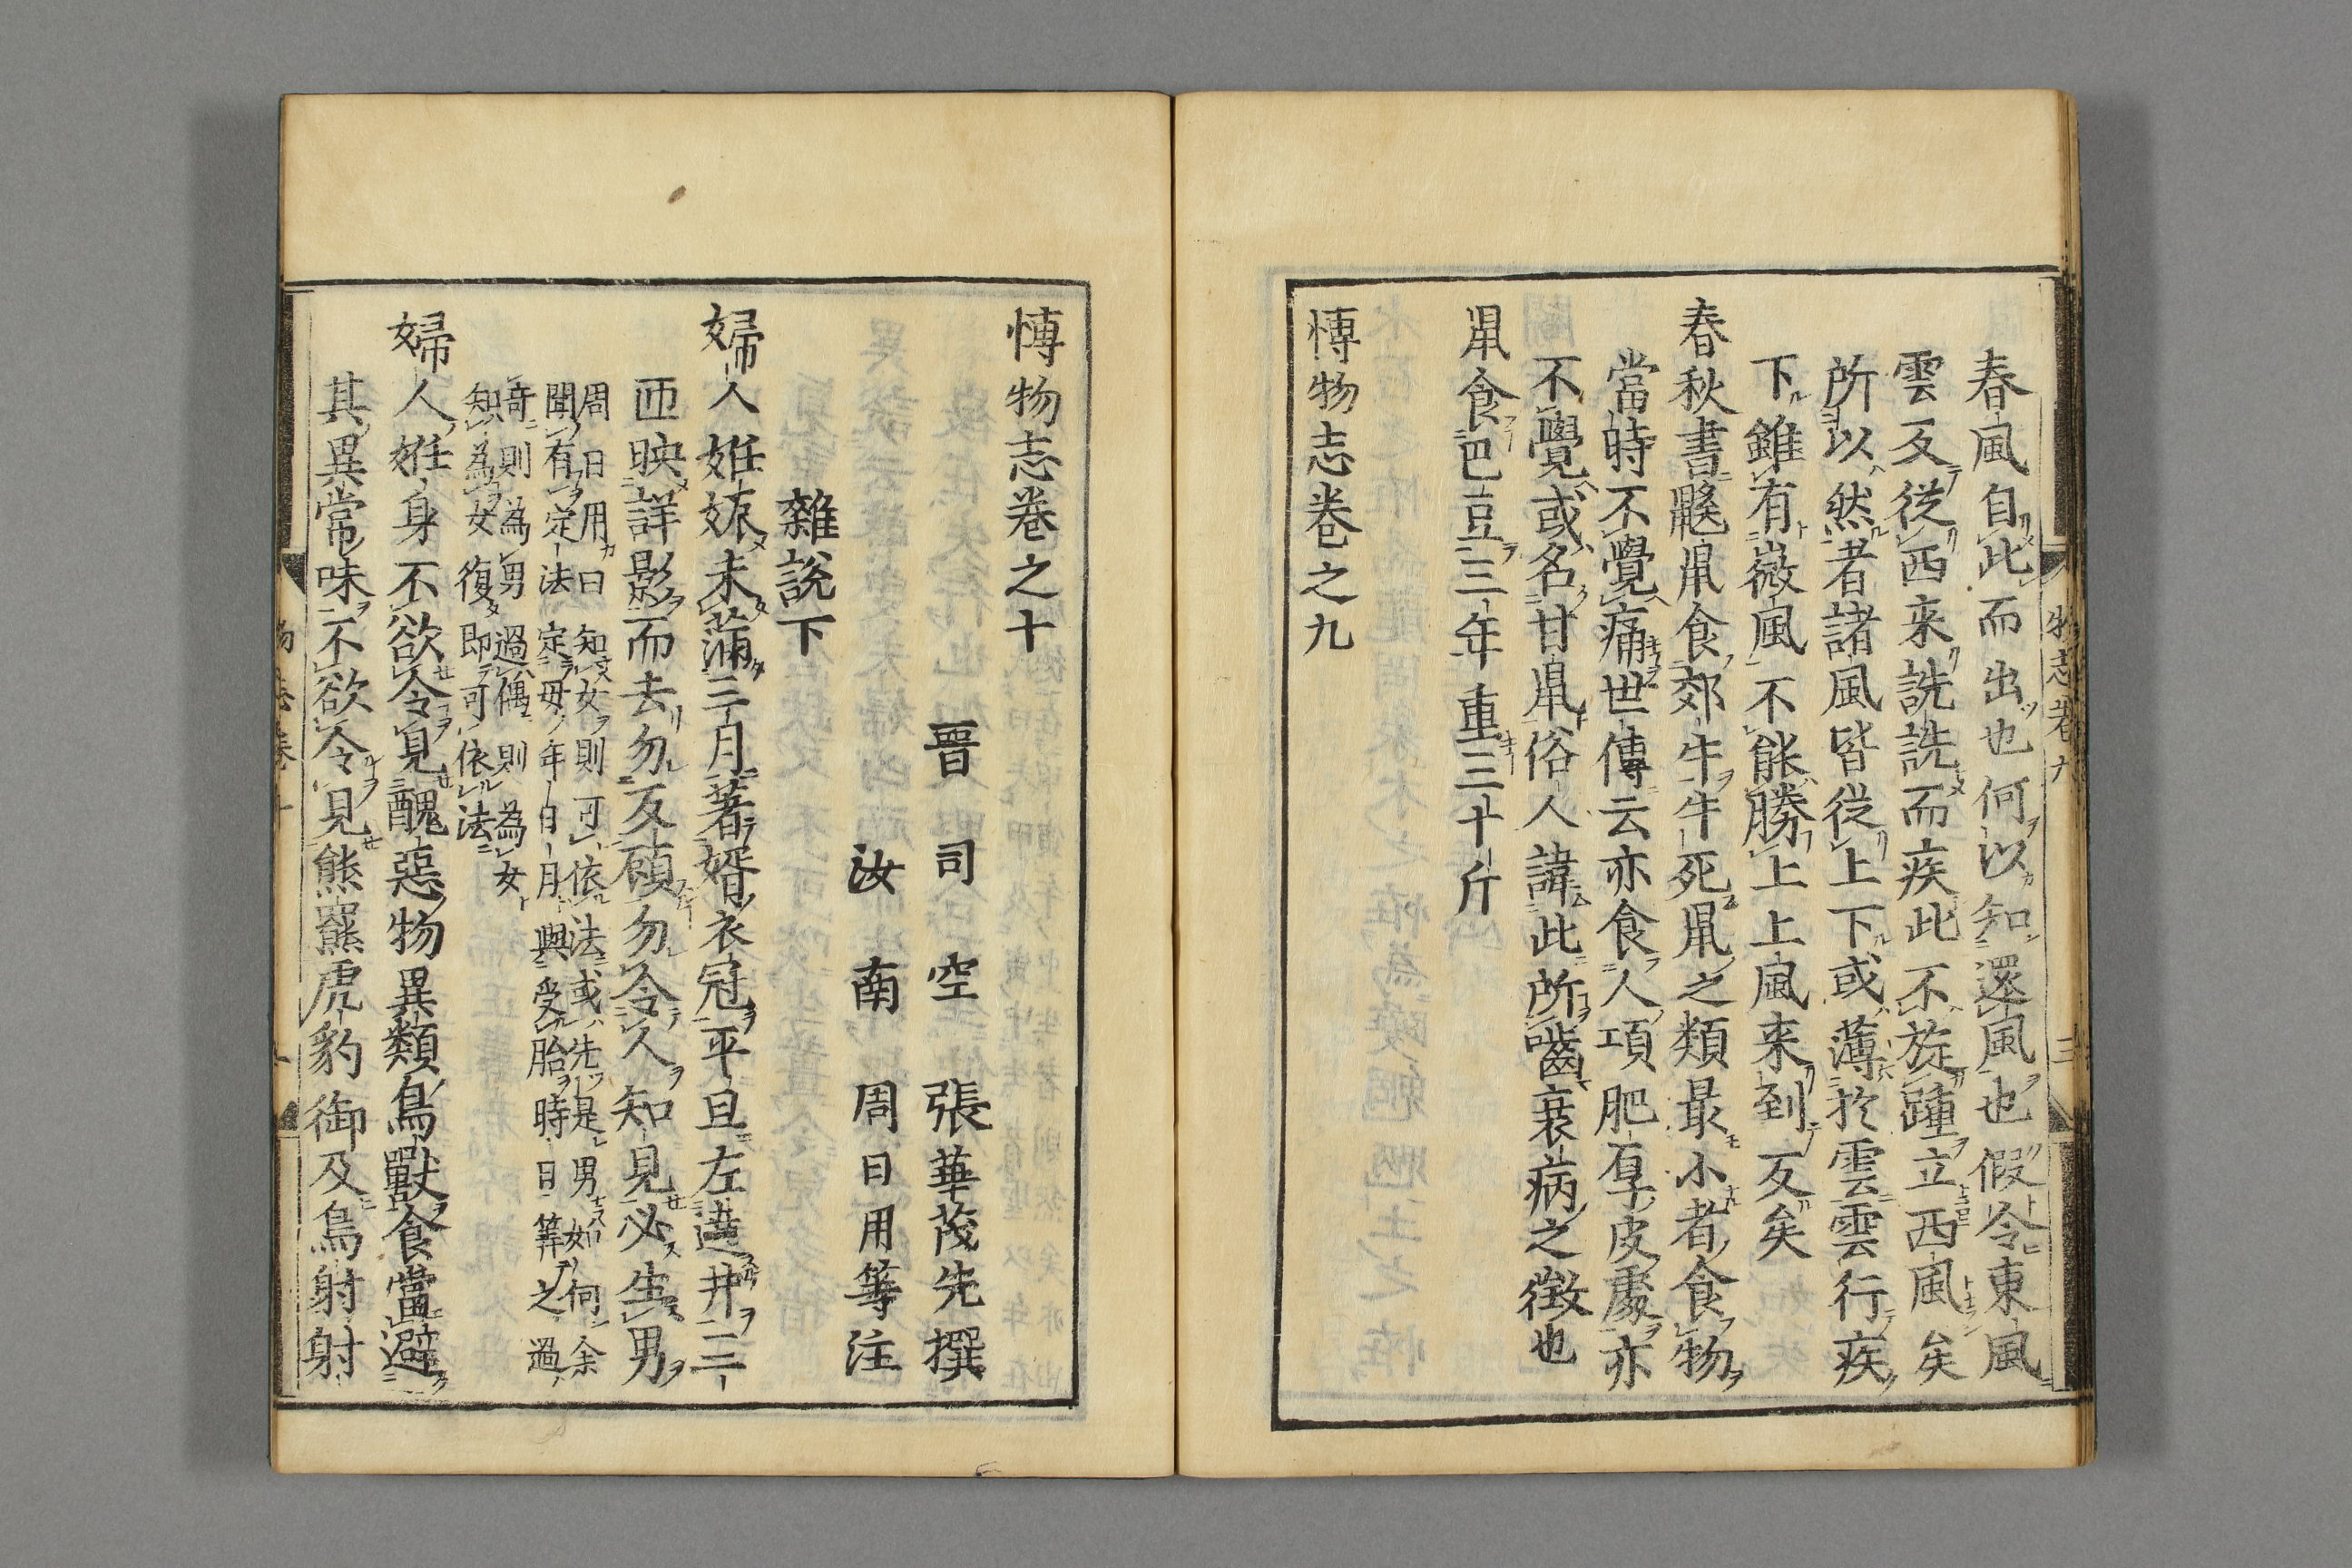 物志卷九 三
春風自此而出也何以知還風也假令東風
雲反従西来詵詵而疾此不旋踵立西風矣
所以然者諸風皆従上下或薄於雲雲行疾
下雖有微風不能勝上上風来到反矣
春秋書鼷鼠食郊牛牛死鼠之類最小者食物
當時不覺痛世傳云亦食人項肥厚皮處亦
不覺或名甘鼠俗人諱此所嚙衰病之徴也
鼠食巴豆三年重三十斤
博物志卷之九
博物志卷之十
晉司空張華茂先撰
汝南周日用等注
雜說下
婦人姙娠未滿三月著婿衣冠平旦左遶井三
匝映詳影而去勿反顧勿令人知見必生男
周日用曰知女則可依法或先是男如何余
聞有定法定母年日月與受胎時日筭之過
奇則為男過偶則為女
知為女復即可依法
婦人姙身不欲令見醜惡物異類鳥獸食當避
其異常味不欲令見熊羆虎豹御及鳥射射